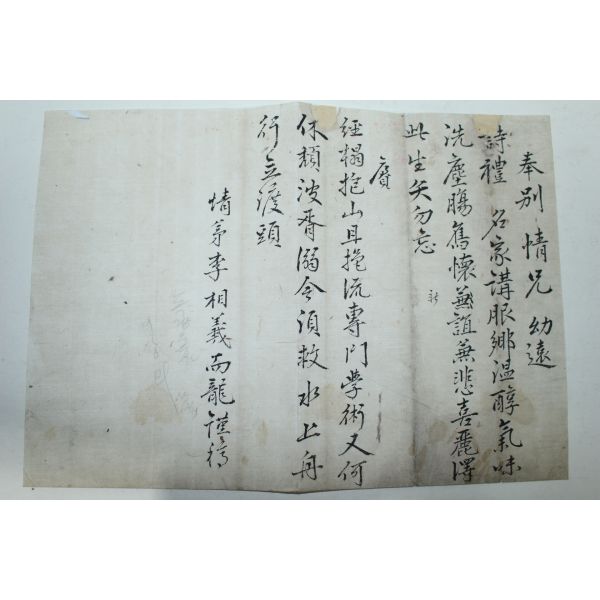 奉別 情兄 幼遠
詩禮 名家講服鄉溫醇氣味
洗塵膓舊懷新誼兼悲喜麗澤
此生矢勿忘
賡
經榻抱山且挹流專門學術又何
休頹波胥溺今須救水上舟
行立渡頭
情弟李相義而龍謹稿